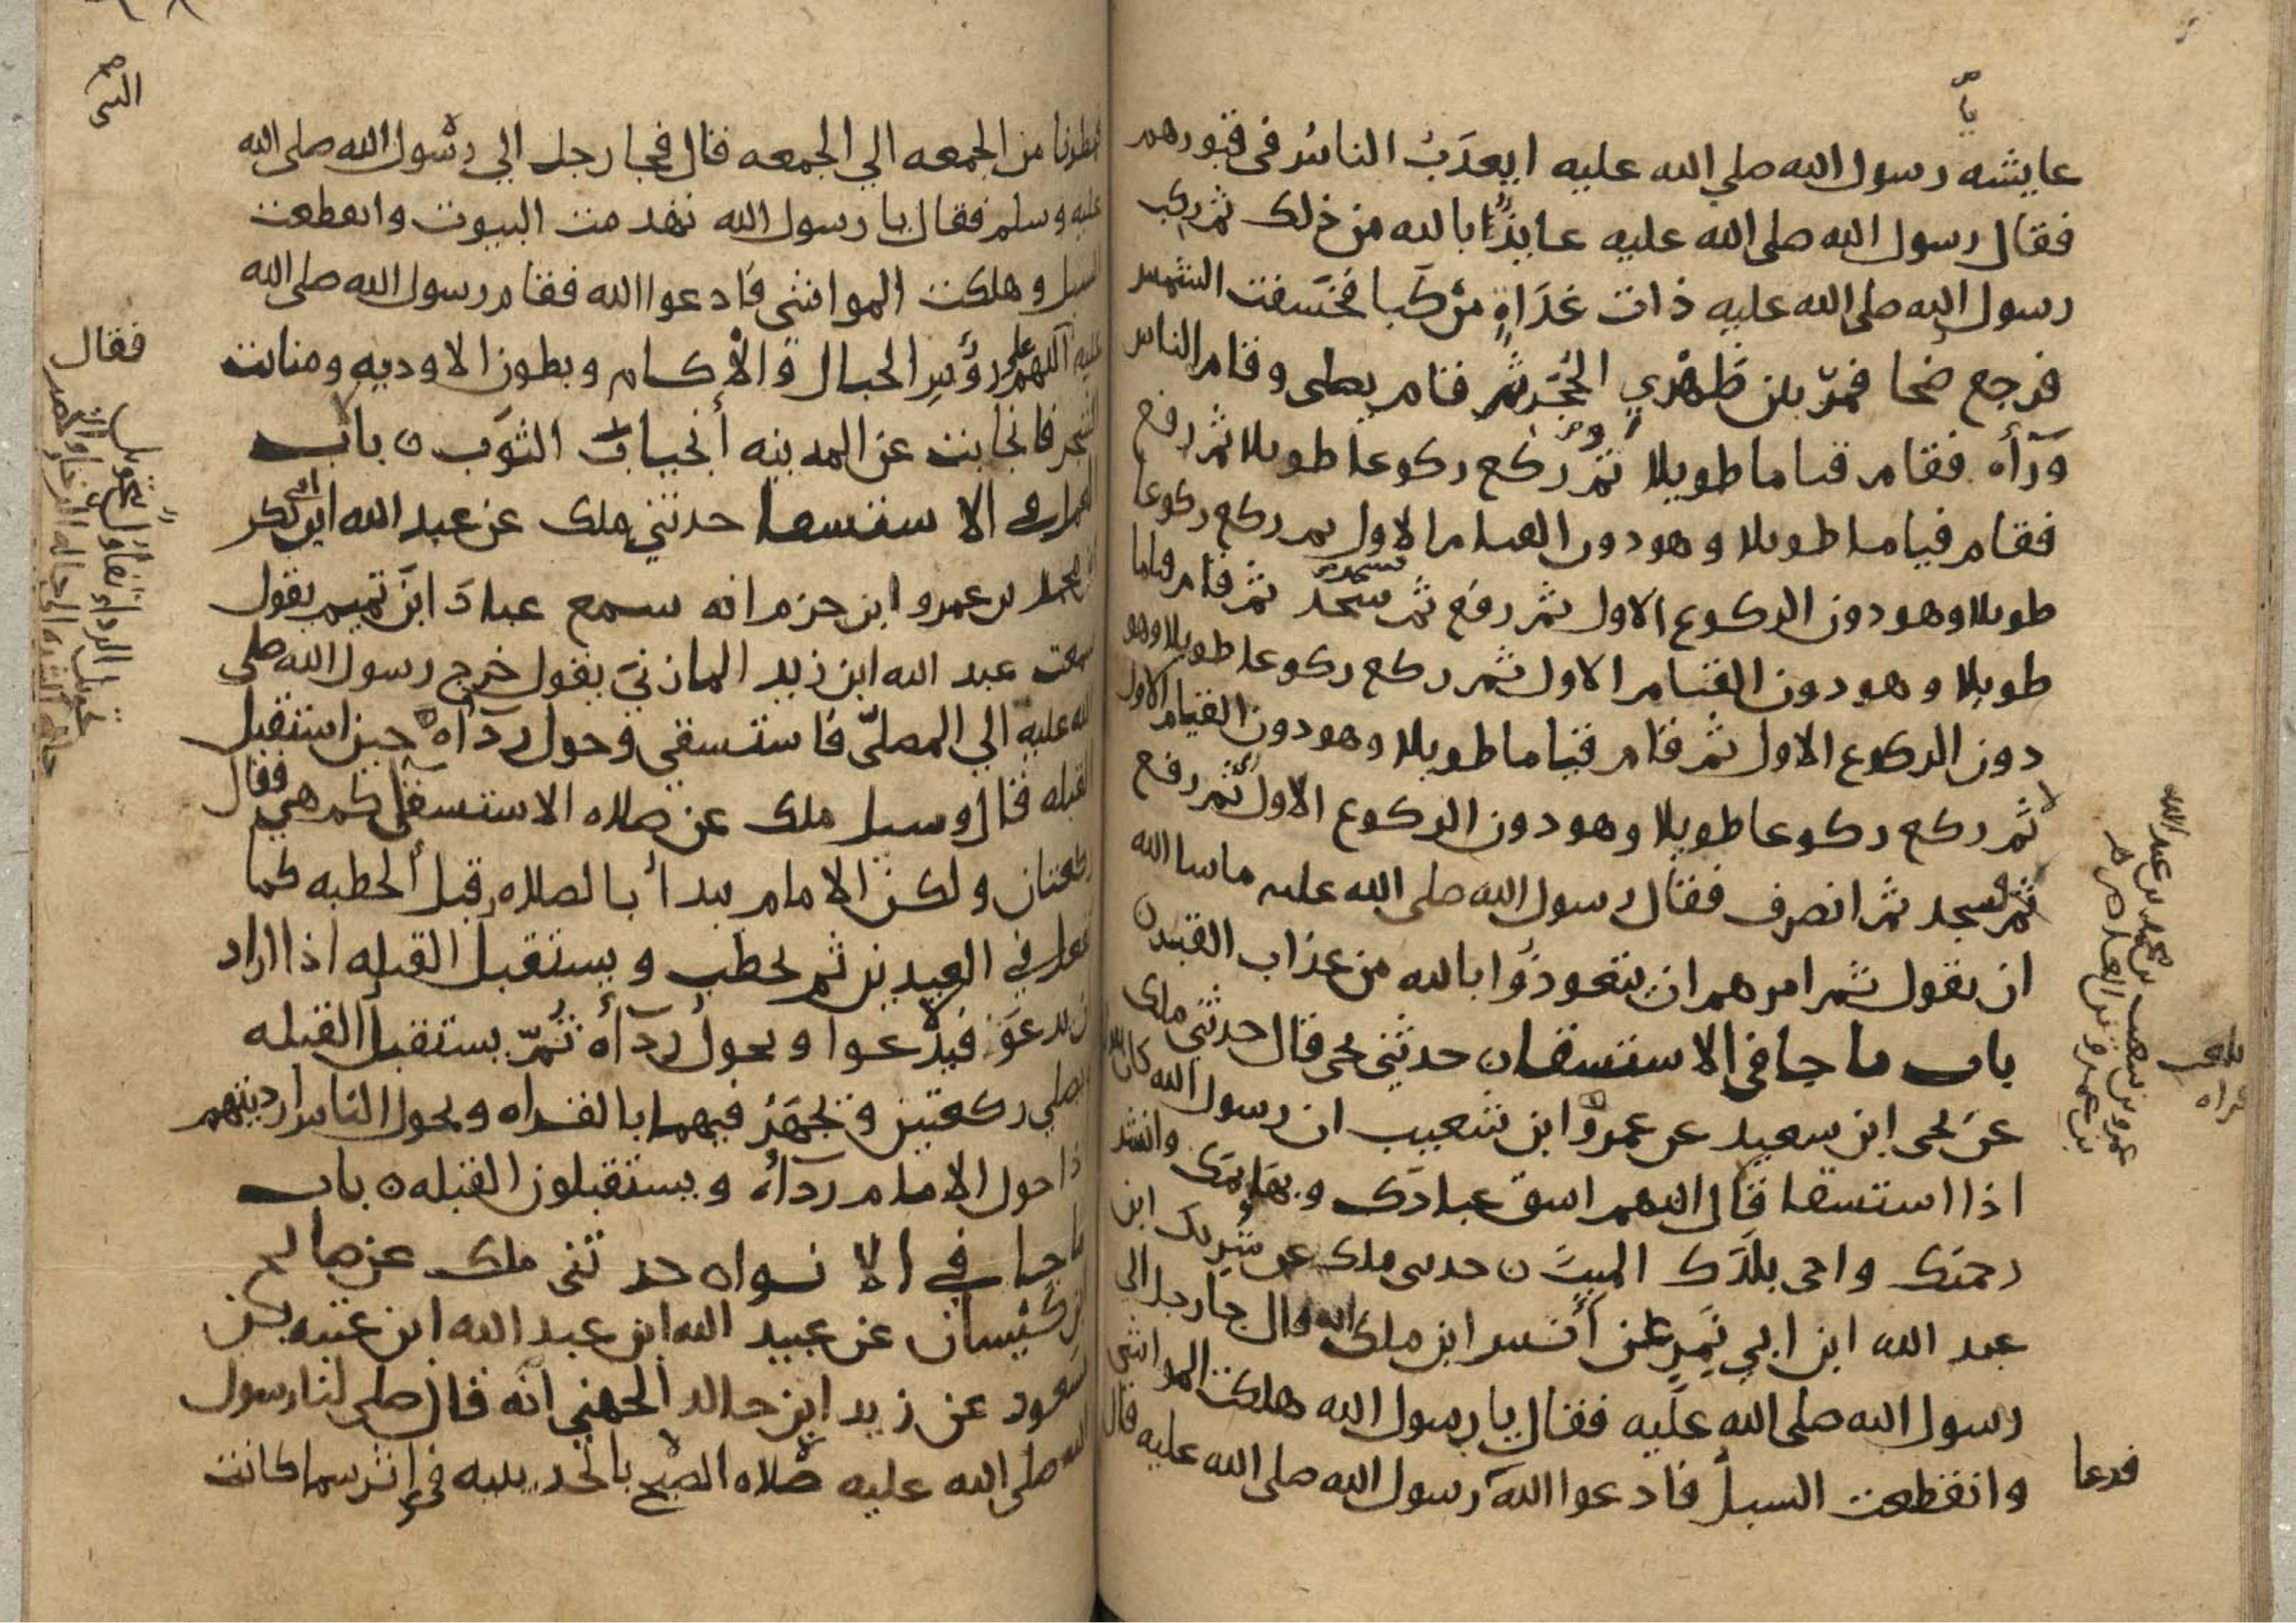 عايشه رسول الله صلي الله عليه ايعذب الناس في قبورهم
فقال رسول الله صلي الله عليه عايذا بالله من ذلك ثم ركب
رسول الله صلي الله عليه ذات غداة مركبا فخسفت الشمس
فرجع ضحا فمر بين ظهري الحجر ثم قام يصلي وقام الناس
ورآه فقام قياما طويلا ثم ركع ركوعا طويلا ثم رفع
فقام قياما طويلا وهو دون القيام الاول ثم ركع ركوعا
طويلا وهو دون الركوع الاول ثم رفع ثم سجد ثم قام قياما
طويلا وهو دون القيام الاول ثم ركع ركوعا طويلا وهو
دون الركوع الاول ثم قام قياما طويلا وهو دون القيام الاول
ثم ركع ركوعا طويلا وهو دون الركوع الاول ثم رفع
ثم سجد ثم انصرف فقال رسول الله صلي الله عليه ما شا الله
ان يقول ثم امرهم ان يتعوذوا بالله من عذاب القبر ن
باب ما جا في الاستسقا ن حدثني يحي قال حدثني ملك
عن يحي ابن سعيد عن عمرو ابن شعيب ان رسول الله كان
اذا استسقا قال اللهم اسق عبادك وبهايمك وانشر
رحمتك واحي بلدك الميت ن حدثني ملك عن شريك ابن
عبد الله ابن ابي نمر عن أنس ابن ملك انه قال جا رجل الي
رسول الله صلي الله عليه فقال يا رسول الله هلكت المواشي
وانقطعت السبل فادعوا الله رسول الله صلي الله عليه قال
فدعا
عمرو بن شعيب بن محمد بن عبد الله
بن عمرو بن العاص
النبي
فمطرنا من الجمعه الي الجمعه قال فجا رجل الي رسول الله صلي الله
عليه وسلم فقال يا رسول الله تهدمت البيوت وانقطعت
السبل وهلكت المواشي فادعوا الله فقام رسول الله صلي الله
عليه اللهم علي رؤس الجبال والأكام وبطون الاوديه ومنابت
الشجر فانجابت عن المدينه أنجياب الثوب ن باب
العمل في الاستسقا حدثني ملك عن عبد الله ابن ابي بكر
بن محمد بن عمرو ابن حزم انه سمع عباد ابن تميم يقول
سمعت عبد الله ابن زيد المازني يقول خرج رسول الله صلي
الله عليه الي المصلي فاستسقي وحول ردآه حين استقبل
القبله قال وسيل ملك عن صلاه الاستسقا كم هي فقال
ركعتان ولكن الامام يبدأ بالصلاه قبل الخطبه كما
فعل في العيدين ثم يخطب ويستقبل القبله اذا اراد
ان يدعو فيدعوا ويحول ردآه ثم يستقبل القبله
يصلي ركعتين ويجهر فيهما بالقراه ويحول الناس ارديتهم
اذا حول الامام ردآه ويستقبلون القبله ن باب
ما جا في الانواه حدثني ملك عن صالح
ابن كيسان عن عبيد الله ابن عبد الله ابن عتبه بن
مسعود عن زيد ابن خالد الجهني انه قال صلي لنا رسول
الله صلي الله عليه صلاه الصبح بالحديبيه في إثر سما كانت
فقال